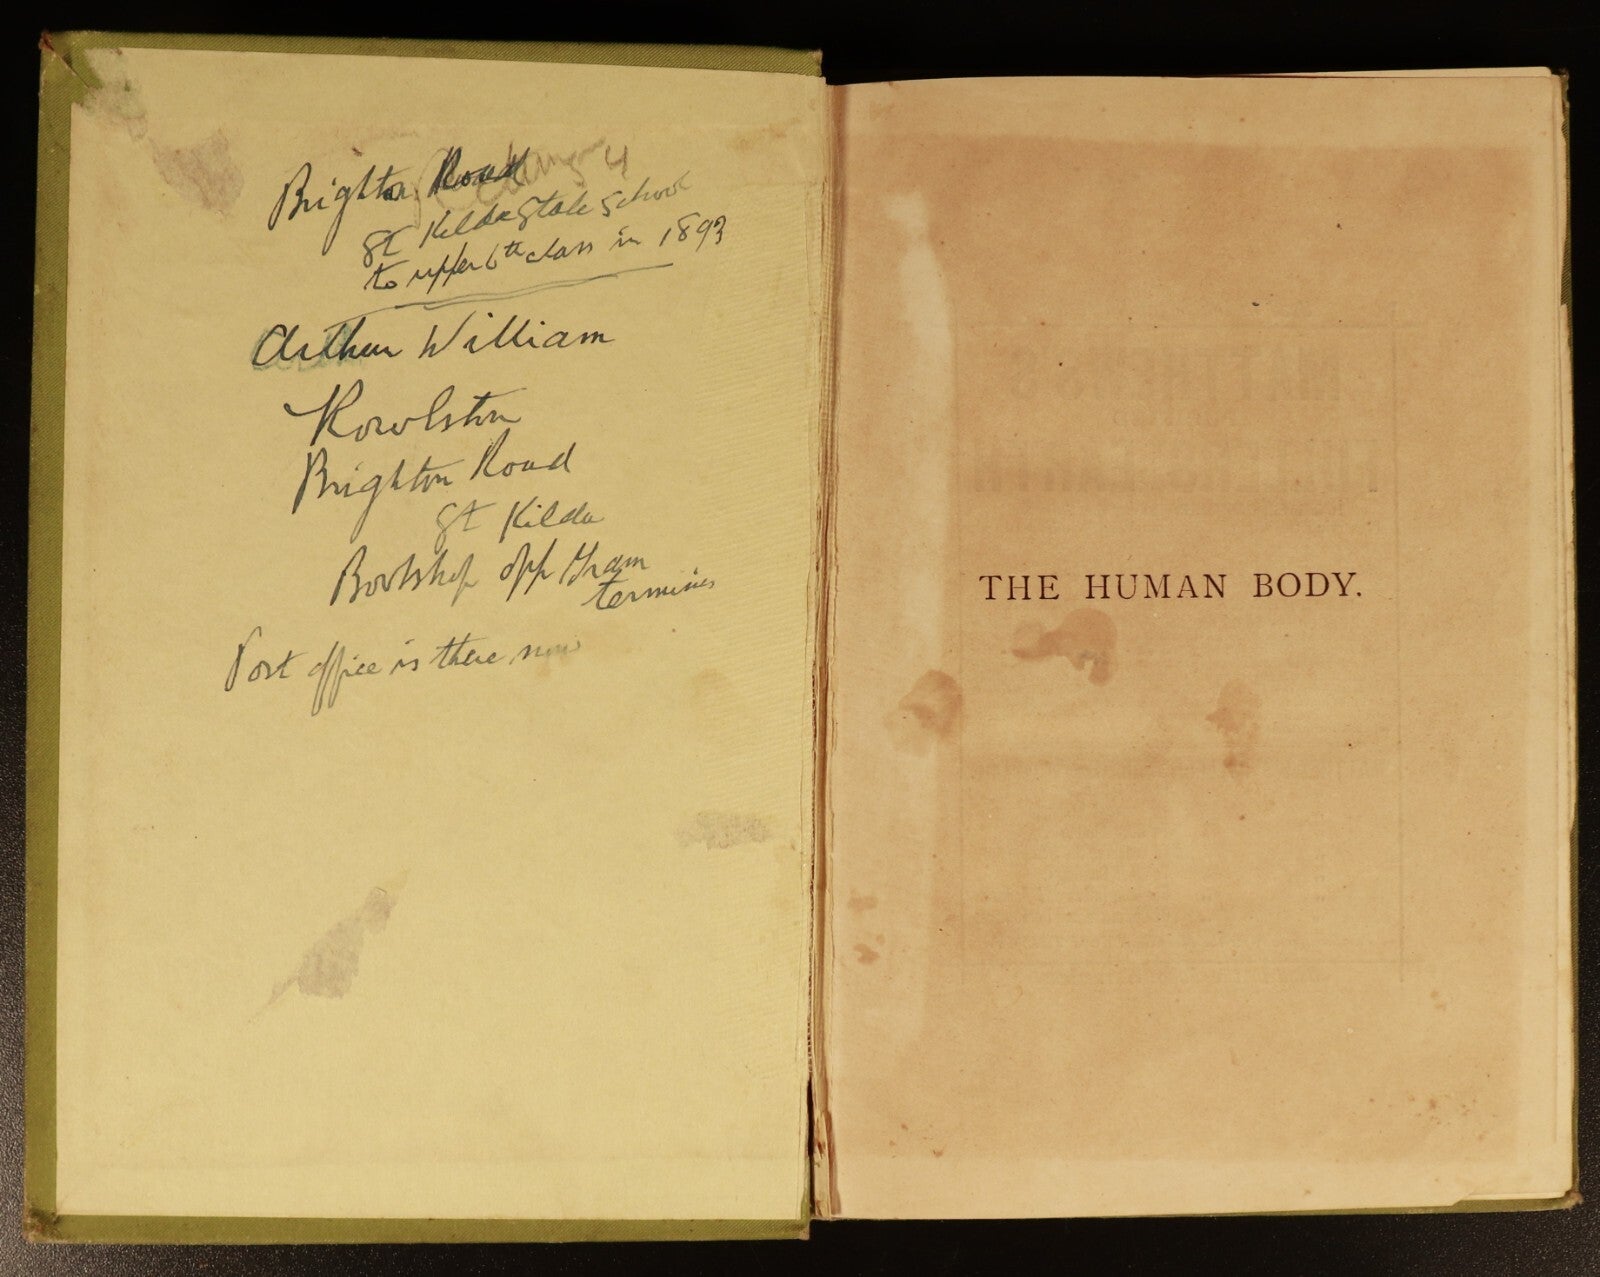 Brighton Road
St Kilda State School
to upper 6th class in 1893
Arthur William
Rowlston
Brighton Road
St Kilda
Bootshop opp Tram
terminus
Post office is there now
THE HUMAN BODY.